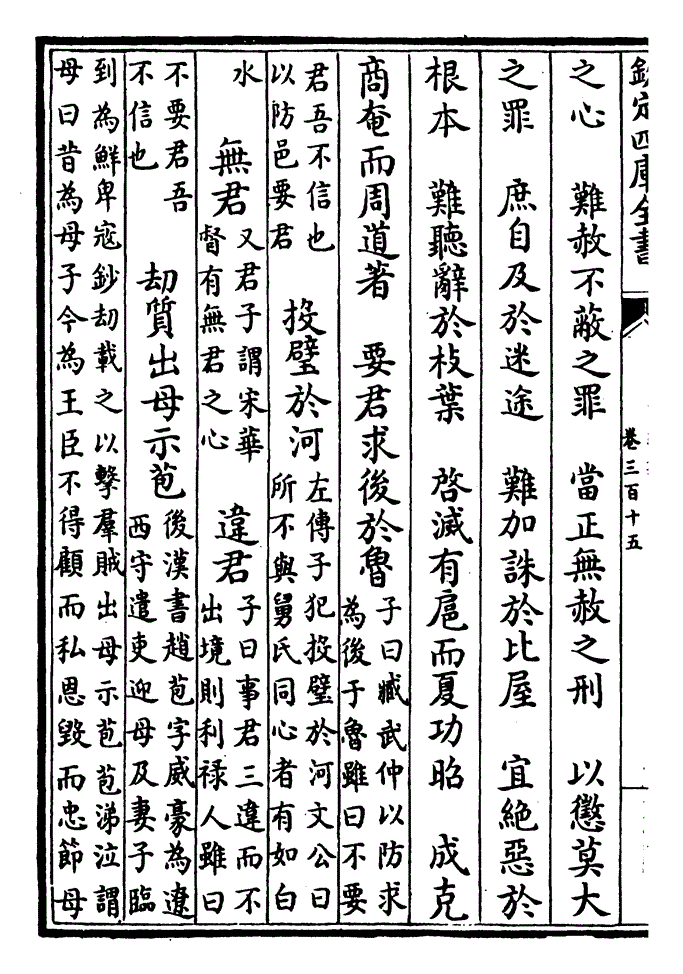 欽定四庫全書
卷三百十五
之心　難赦不蔽之罪　當正無赦之刑　以懲莫大
之罪　庶自及於迷途　難加誅於比屋　宜絶惡於
根本　難聽辭於枝葉　啓滅有扈而夏功昭　成克
商奄而周道著　要君求後於魯
子曰臧武仲以防求
為後于魯雖曰不要
君吾不信也
以防邑要君
投璧於河
左傳子犯投璧於河文公曰
所不與舅氏同心者有如白
水
無君
又君子謂宋華
督有無君之心
違君
子曰事君三違而不
出境則利禄人雖曰
不要君吾
不信也
劫質出母示苞
後漢書趙苞字威豪為遼
西守遣吏迎母及妻子臨
到為鮮卑寇鈔劫載之以擊羣賊出母示苞苞涕泣謂
母曰昔為母子今為王臣不得顧而私恩毀而忠節母